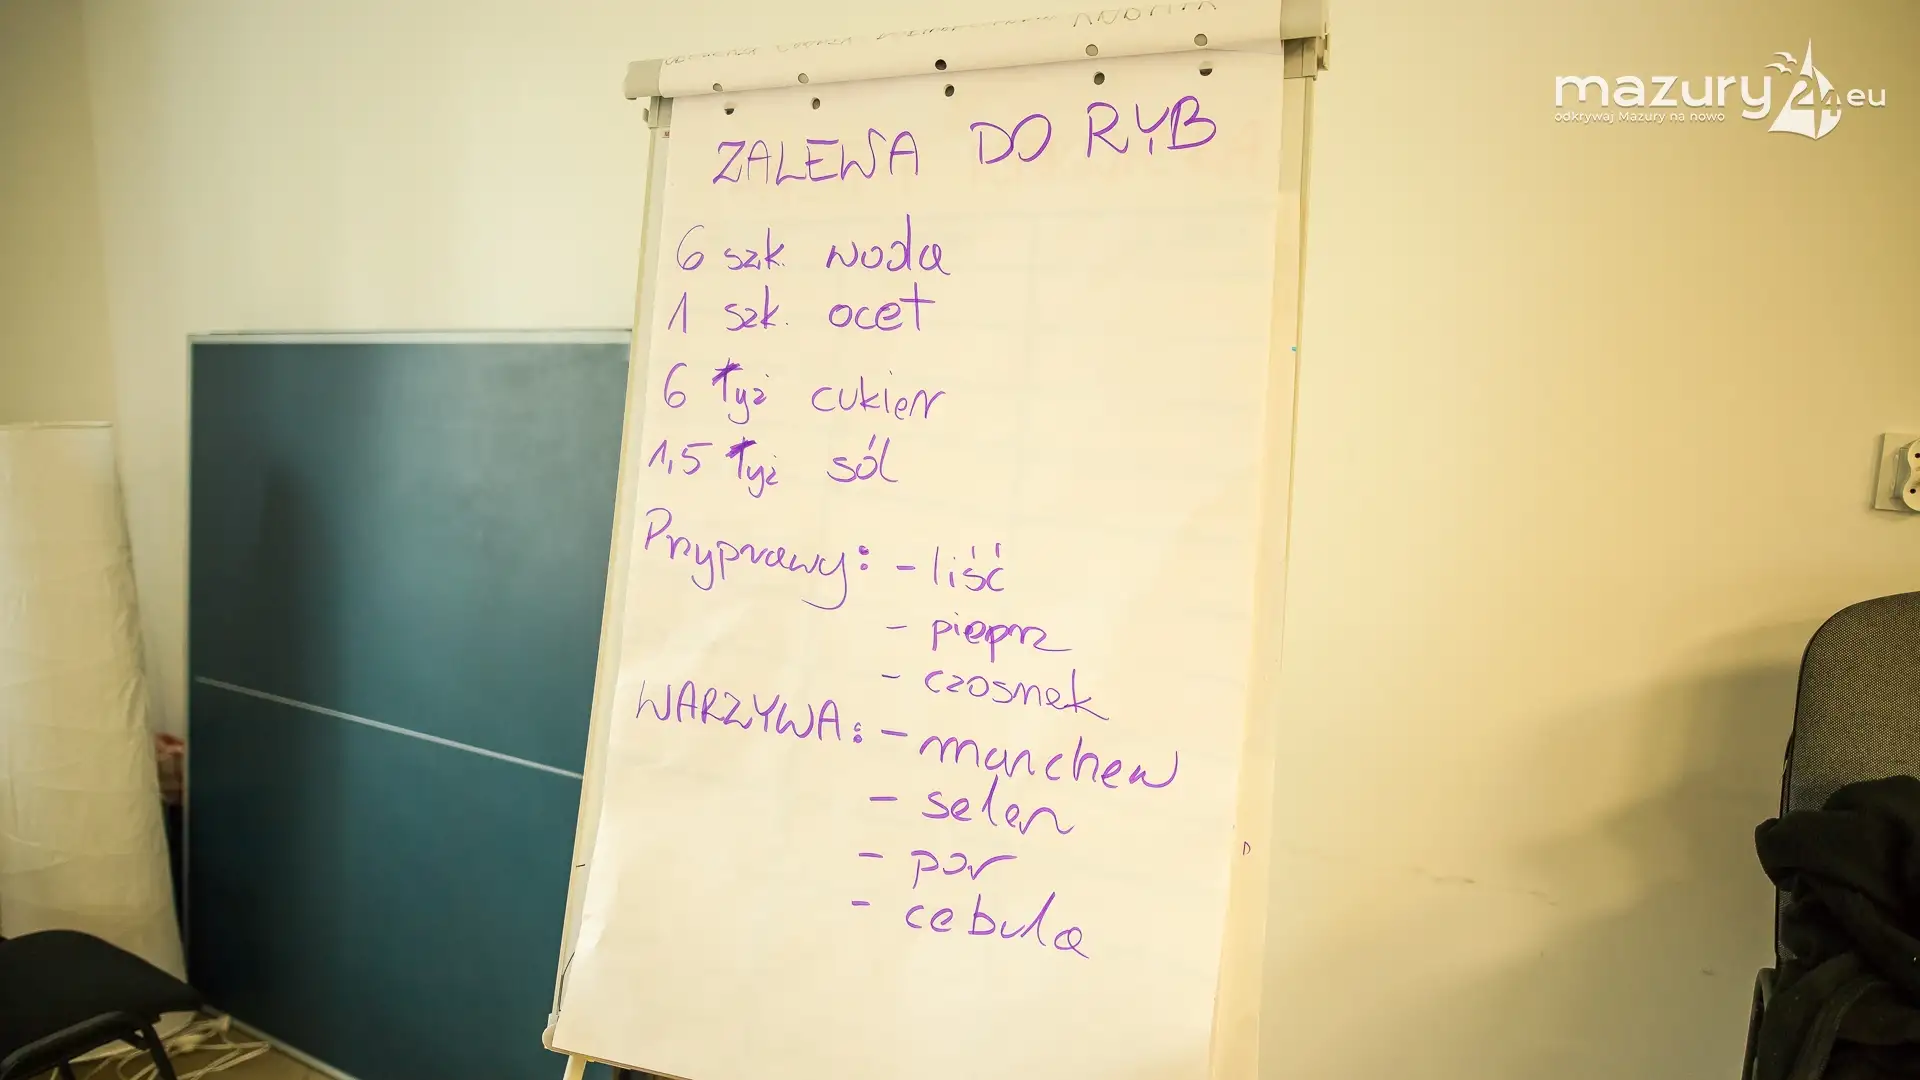 mazury24.eu
odkrywaj Mazury na nowo
ZALEWA DO RYB
6 szk. woda
1 szk. ocet
6 łyż cukier
1,5 łyż sól
Przyprawy: - liść
- pieprz
- czosnek
WARZYWA: - marchew
- seler
- por
- cebula